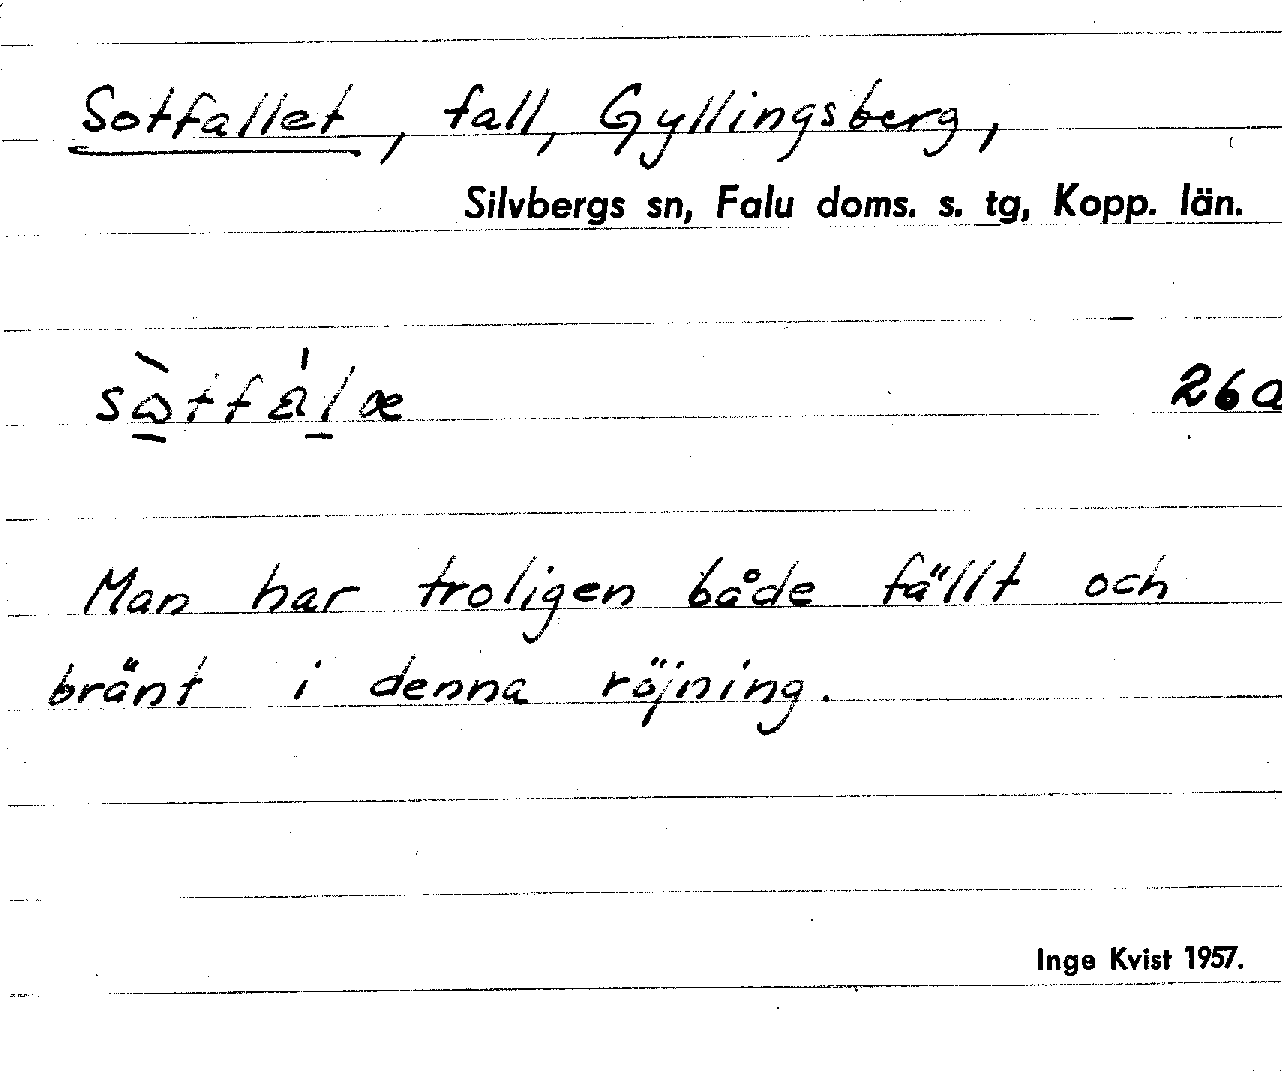 Sotfallet, fall, Gyllingsberg,
Silvbergs sn, Falu doms. s. tg, Kopp. län.
26a
Man har troligen både fällt och
bränt i denna röjning.
Inge Kvist 1957.